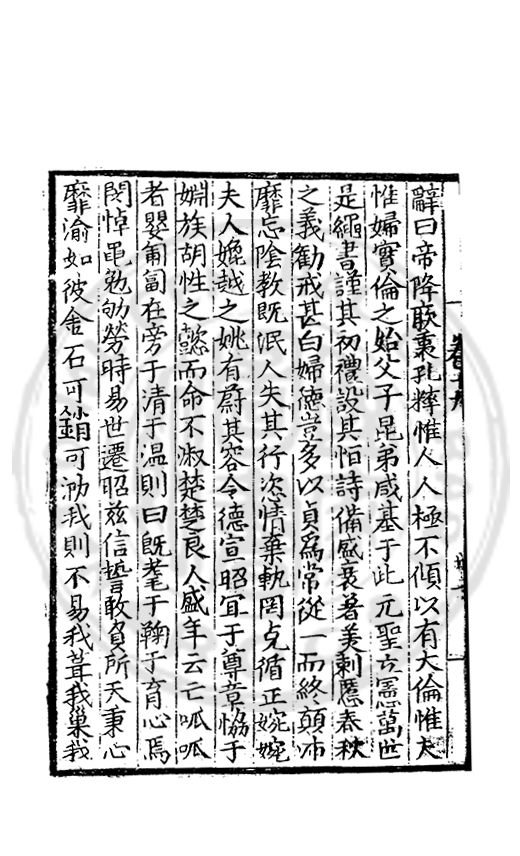 辭曰帝降厥衷孔粹惟人人極不傾以有大倫惟夫
惟婦實倫之始父子昆弟咸基于此元聖立憲萬世
是繩書謹其初禮設其恒詩備盛衰著美刺慝春秋
之義勸戒甚白婦德豈多以貞爲常從一而終顛沛
靡忘陰教既泯人失其行恣情棄軌罔克循正婉婉
夫人媲越之姚有蔚其容令德宣昭宜于尊章恊于
婣族胡性之懿而命不淑楚楚良人盛年云亡呱呱
者嬰匍匐在旁于清于温則曰旣耄于鞠于育心焉
閔悼黽勉劬勞時易世遷昭兹信誓敢負所天秉心
靡渝如彼金石可銷可泐我則不易我葺我巢我